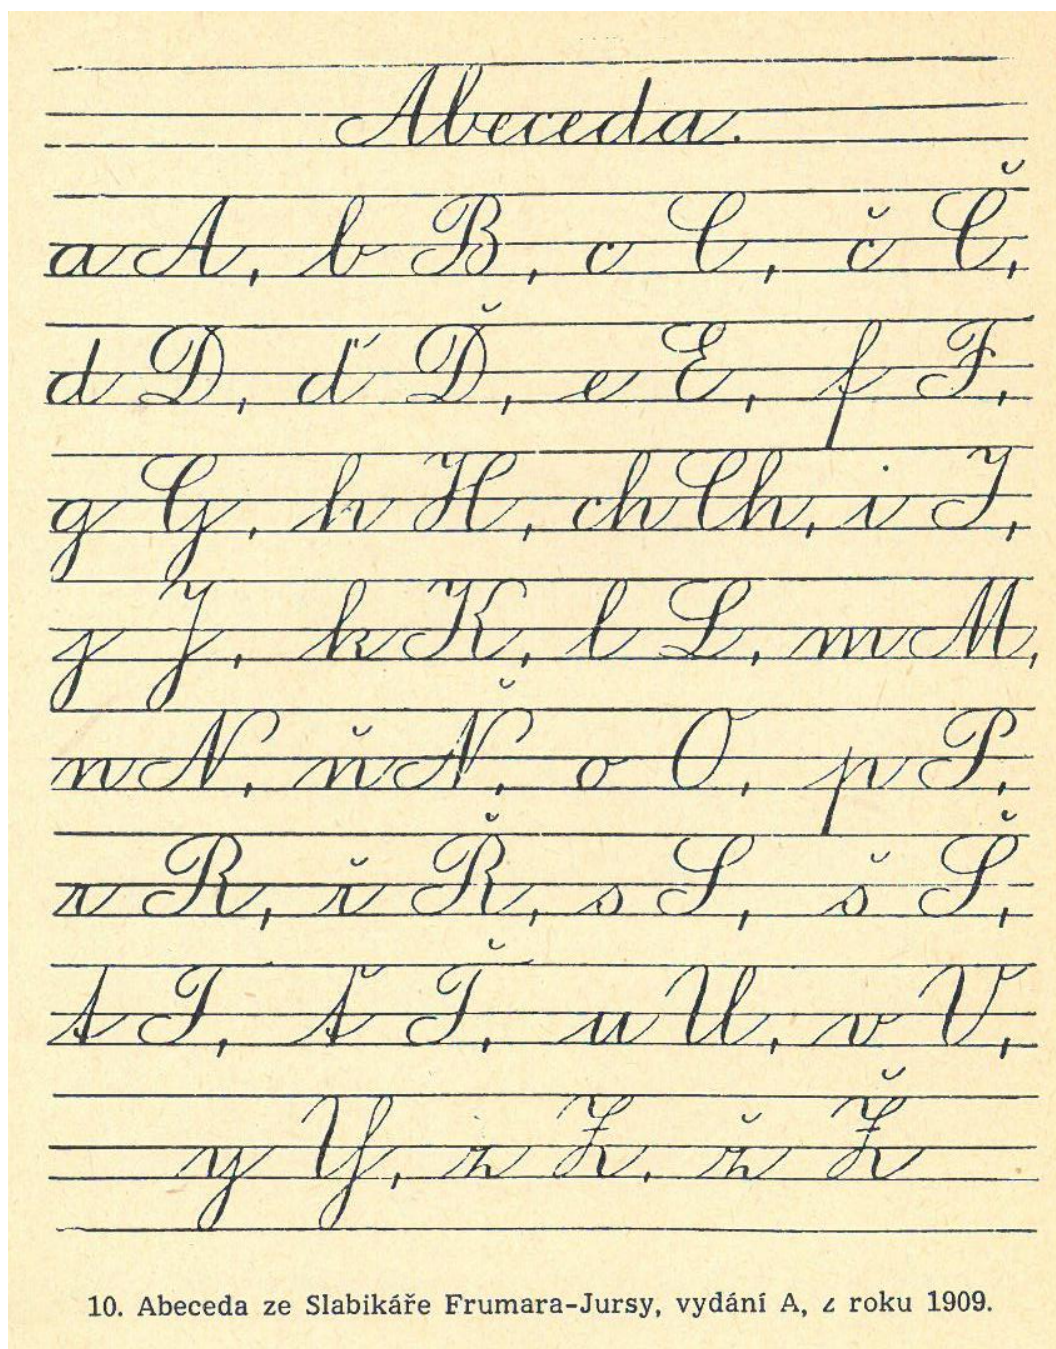 Abeceda.
a A, b B, c C, č Č,
d D, ď Ď, e E, f F,
g G, h H, ch Ch, i I,
j J, k K, l L, m M,
n N, ň Ň, o O, p P,
r R, ř Ř, s S, š Š,
t T, ť Ť, u U, v V,
y Y, z Z, ž Ž
10. Abeceda ze Slabikáře Frumara-Jursy, vydání A, z roku 1909.